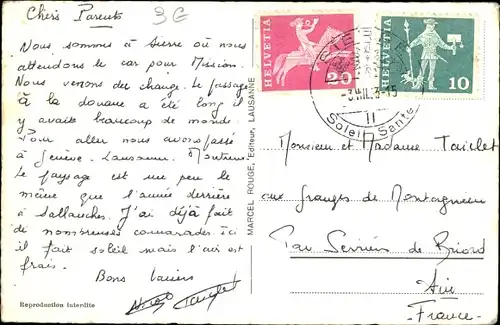 Chers Parents
3€
Nous sommes à Sierre où nous
attendons le car pour Mission.
Nous venons de change. Le passage
à la douane a été long il
y avait beaucoup de monde.
Pour aller nous avons passé
à Genève. Lausanne. Montreux
Le paysage est un peu le
même que l'année dernière
à Sallanches. J'ai déjà fait
de nombreuses camarades. ici
il fait soleil mais l'air est
frais.
Bons baisers
Reproduction interdite
MARCEL ROUGE, Editeur, LAUSANNE
HELVETIA
20
HELVETIA
10
Soleil Santé
Monsieur et Madame Taiclet
aux granges de Montagnieu
Par Serrières de Briord
Ain
- France -